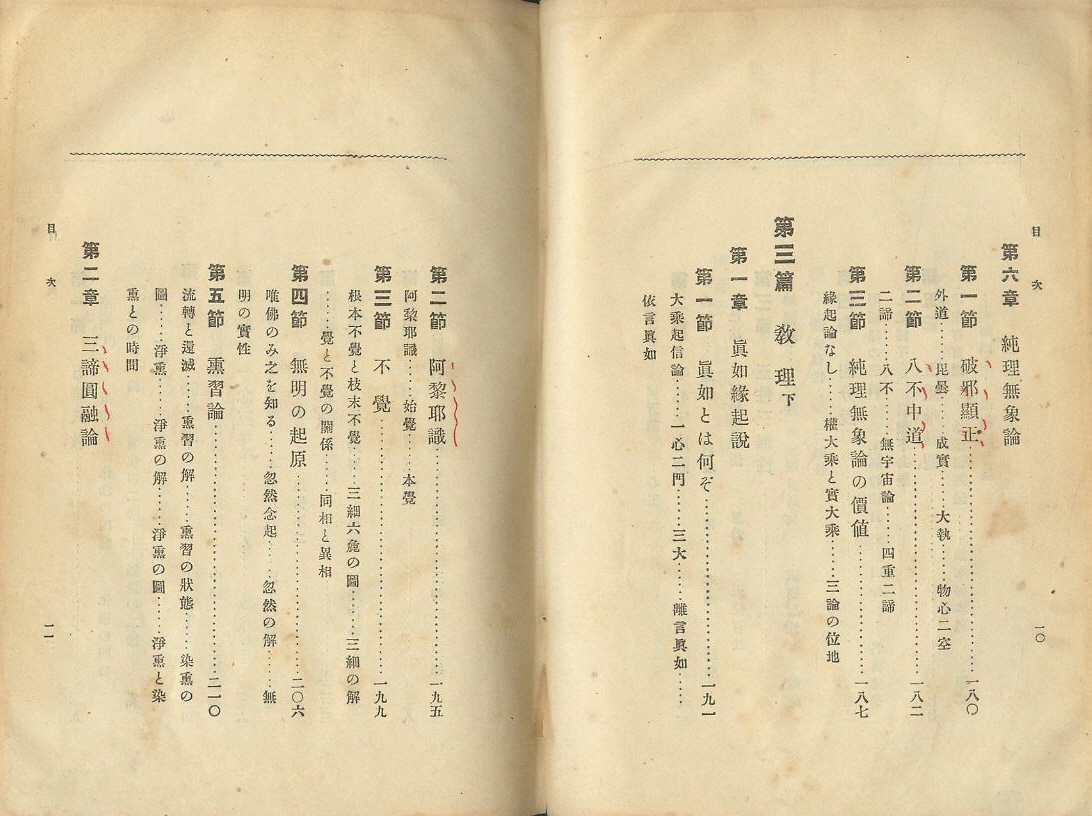 目次
一〇
第六章 純理無象論
第一節 破邪顯正…………一八〇
外道……毘曇……成實……大執……物心二空
第二節 八不中道…………一八二
二諦……八不……無宇宙論……四重二諦
第三節 純理無象論の價値…………一八七
緣起論なし……權大乘と實大乘……三論の位地
第三篇 敎理下
第一章 眞如緣起說
第一節 眞如とは何ぞ…………一九一
大乘起信論……一心二門……三大……離言眞如……
依言眞如
第二節 阿黎耶識…………一九五
阿黎耶識……始覺……本覺
第三節 不覺…………一九九
根本不覺と枝末不覺……三細六麁の圖……三細の解
……覺と不覺の關係……同相と異相
第四節 無明の起原…………二〇六
唯佛のみ之を知る……忽然念起……忽然の解……無
明の實性
第五節 熏習論…………二一〇
流轉と還滅……熏習の解……熏習の狀態……染熏の
圖……淨熏……淨熏の解……淨熏の圖……淨熏と染
熏との時間
第二章 三諦圓融論
目次
一一